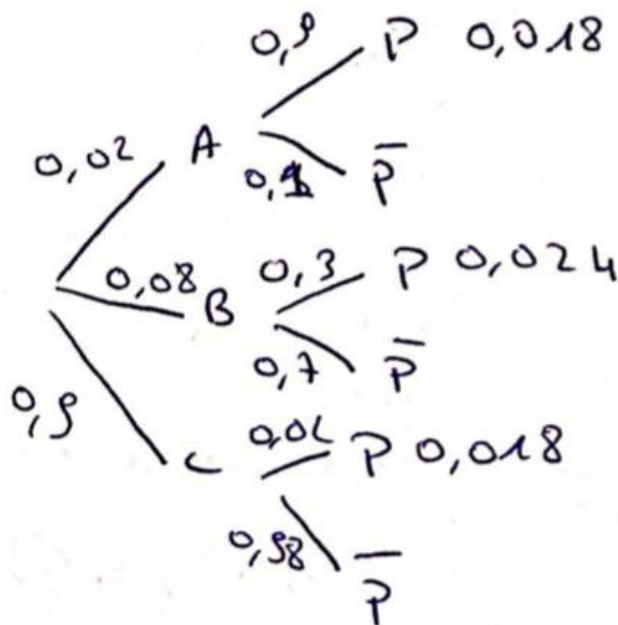 0,9 P 0,018
0,02 A
0,1 P̅
0,08 B 0,3 P 0,024
0,7 P̅
0,9
C 0,02 P 0,018
0,98 P̅